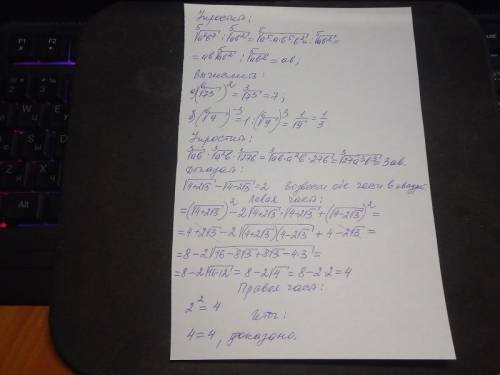 Упростить:
⁵√a⁶b⁷ : ⁵√ab² = ⁵√a⁵·a·b⁵·b² : ⁵√ab² =
= ab ⁵√ab² : ⁵√ab² = ab;
Вычислить:
а) (⁶√73)² = ³√73 = 7;
б) (⁶√9)⁻³ = 1 : (⁶√9)³ = 1/√9 = 1/3
Упростить:
³√ab · ³√a²b · ³√27b = ³√ab·a²b·27b = ³√27a³b³ = 3ab.
Доказать:
√4+2√3 - √4-2√3 = 2 возвести обе части в квадрат
Левая часть:
= (√4+2√3)² - 2√4+2√3 · √4-2√3 + (√4-2√3)² =
= 4+2√3 - 2√(4+2√3)(4-2√3) + 4-2√3 =
= 8-2√16-8√3+8√3-4·3 =
= 8-2√16-12 = 8-2√4 = 8-2·2 = 4
Правая часть:
2² = 4
Итог:
4 = 4, доказано.